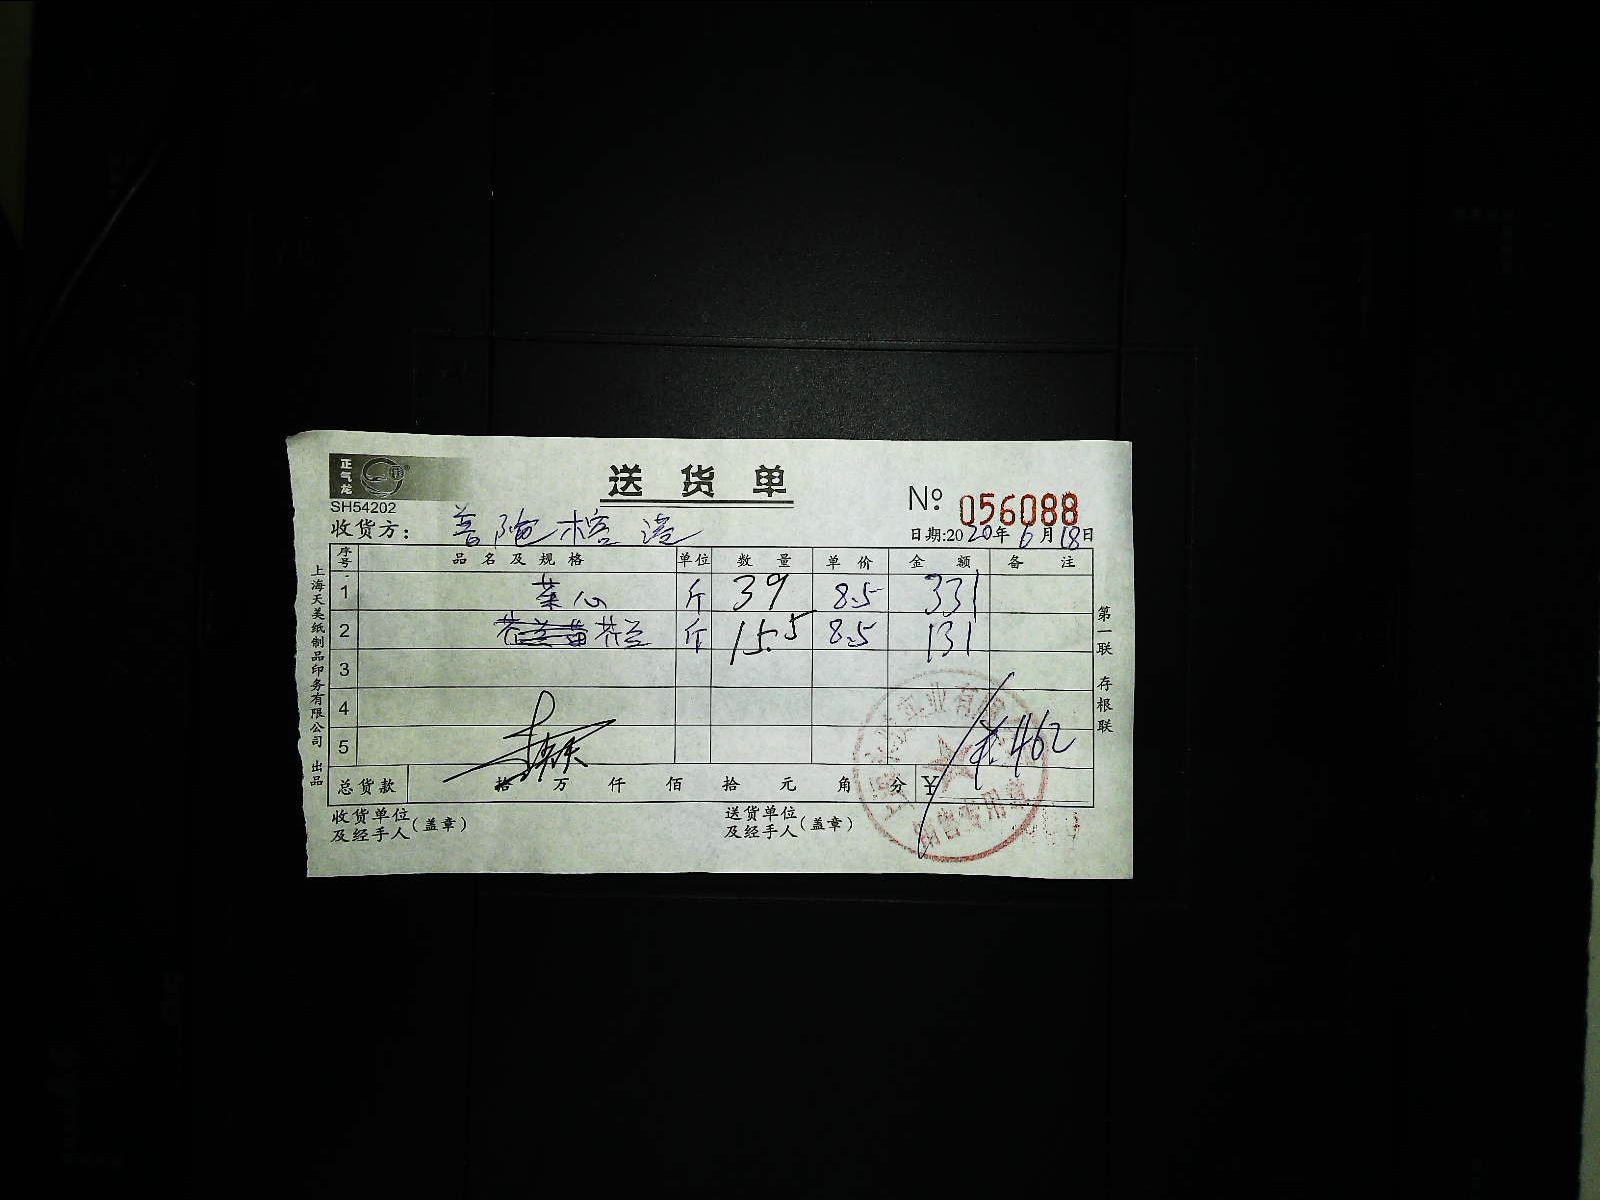 正气龙
送货单
SH54202
№ 056088
收货方: 普陀榕港
日期:2020年6月18日
序号 品名及规格 单位 数量 单价 金额 备注
1 菜心 斤 39 8.5 331
2 芥兰苗 芥兰 斤 15.5 8.5 131
3
4
5
共462
总货款 拾 万 仟 佰 拾 元 角 分 ¥
收货单位及经手人(盖章)
送货单位及经手人(盖章)
上海天美纸制品印务有限公司 出品
第一联 存根联
销售专用章